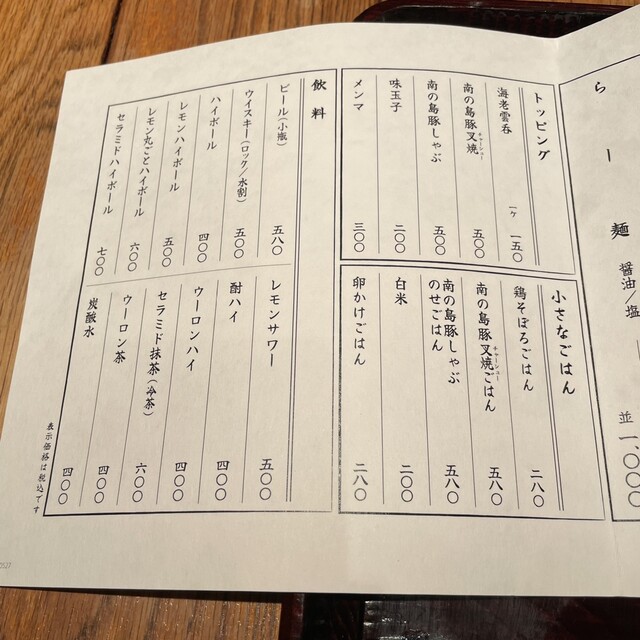 らー麺
醤油/塩
並 一、〇〇〇
トッピング
海老雲呑 一ヶ 一五〇
南の島豚叉焼 チャーシュー 五〇〇
南の島豚しゃぶ 五〇〇
味玉子 二〇〇
メンマ 三〇〇
小さなごはん
鶏そぼろごはん 二八〇
南の島豚叉焼ごはん チャーシュー 五八〇
南の島豚しゃぶ
のせごはん 五八〇
白米 二〇〇
卵かけごはん 二八〇
飲料
ビール(小瓶) 五八〇
ウイスキー(ロック/水割) 五〇〇
ハイボール 四〇〇
レモンハイボール 五〇〇
レモン丸ごとハイボール 六〇〇
セラミドハイボール 七〇〇
レモンサワー 五〇〇
酎ハイ 四〇〇
ウーロンハイ 四〇〇
セラミド抹茶(冷茶) 六〇〇
ウーロン茶 四〇〇
炭酸水 四〇〇
表示価格は税込です